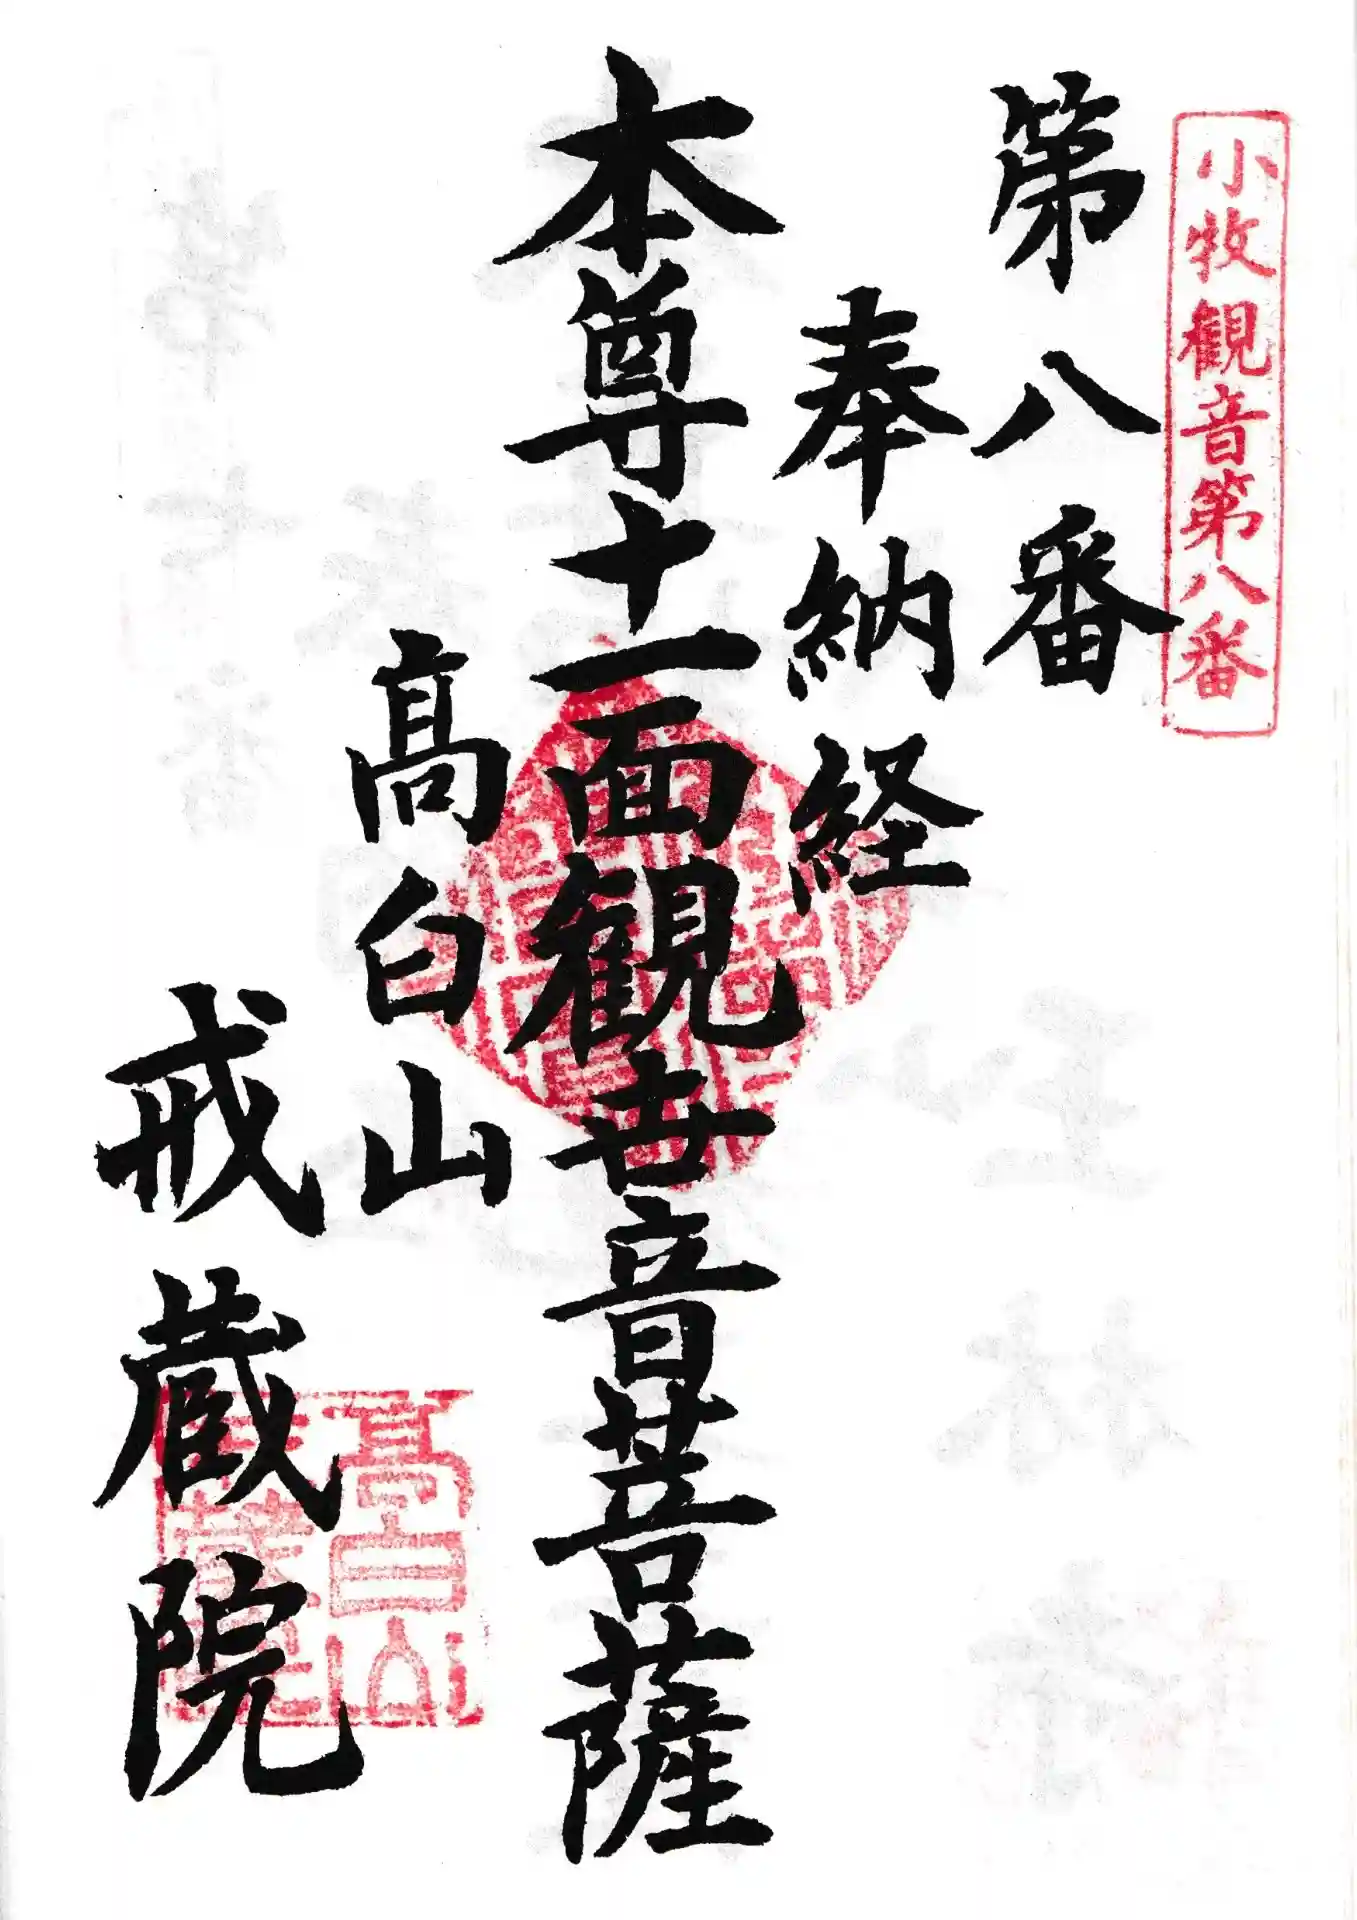 小牧観音第八番
第八番
奉納経
本尊十一面観世音菩薩
髙白山
戒蔵院
髙白山
戒蔵院